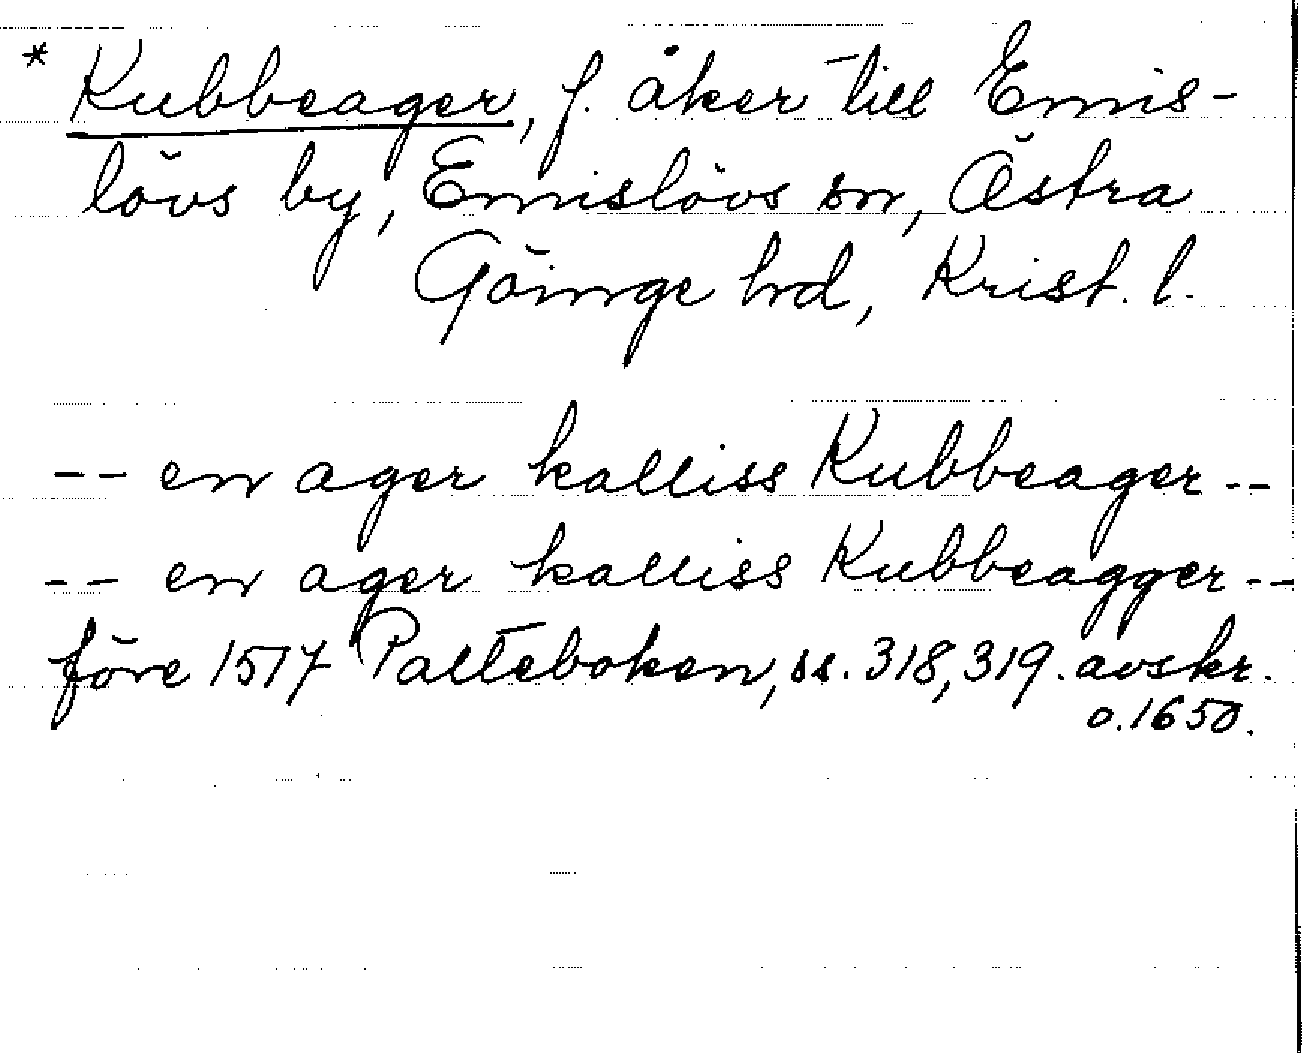 * Kubbeager, f. åker till Emis-
lövs by, Emislövs sn, Östra
Göinge hrd, Krist. l.
-- en ager kalliss Kubbeager --
-- en ager kalliss Kubbeagger --
före 1517 Palteboken, ss. 318, 319. avskr.
o. 1650.